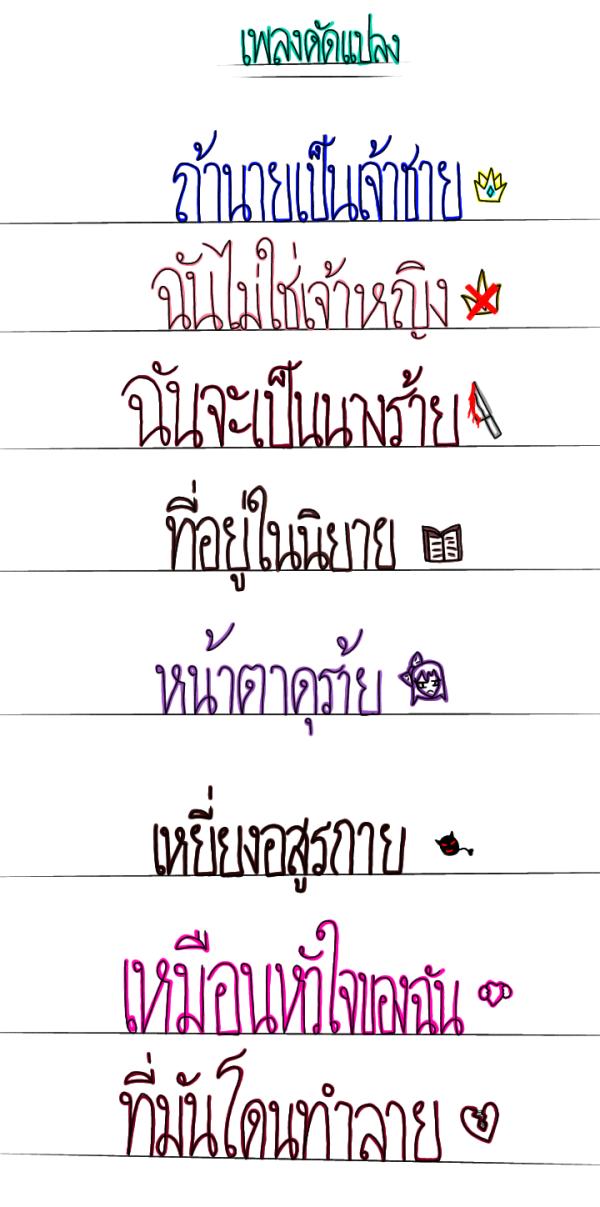 เพลงดัดแปลง
ถ้านายเป็นเจ้าชาย
ฉันไม่ใช่เจ้าหญิง
ฉันจะเป็นนางร้าย
ที่อยู่ในนิยาย
หน้าตาดุร้าย
เหยี่ยงอสูรกาย
เหมือนหัวใจของฉัน
ที่มันโดนทำลาย